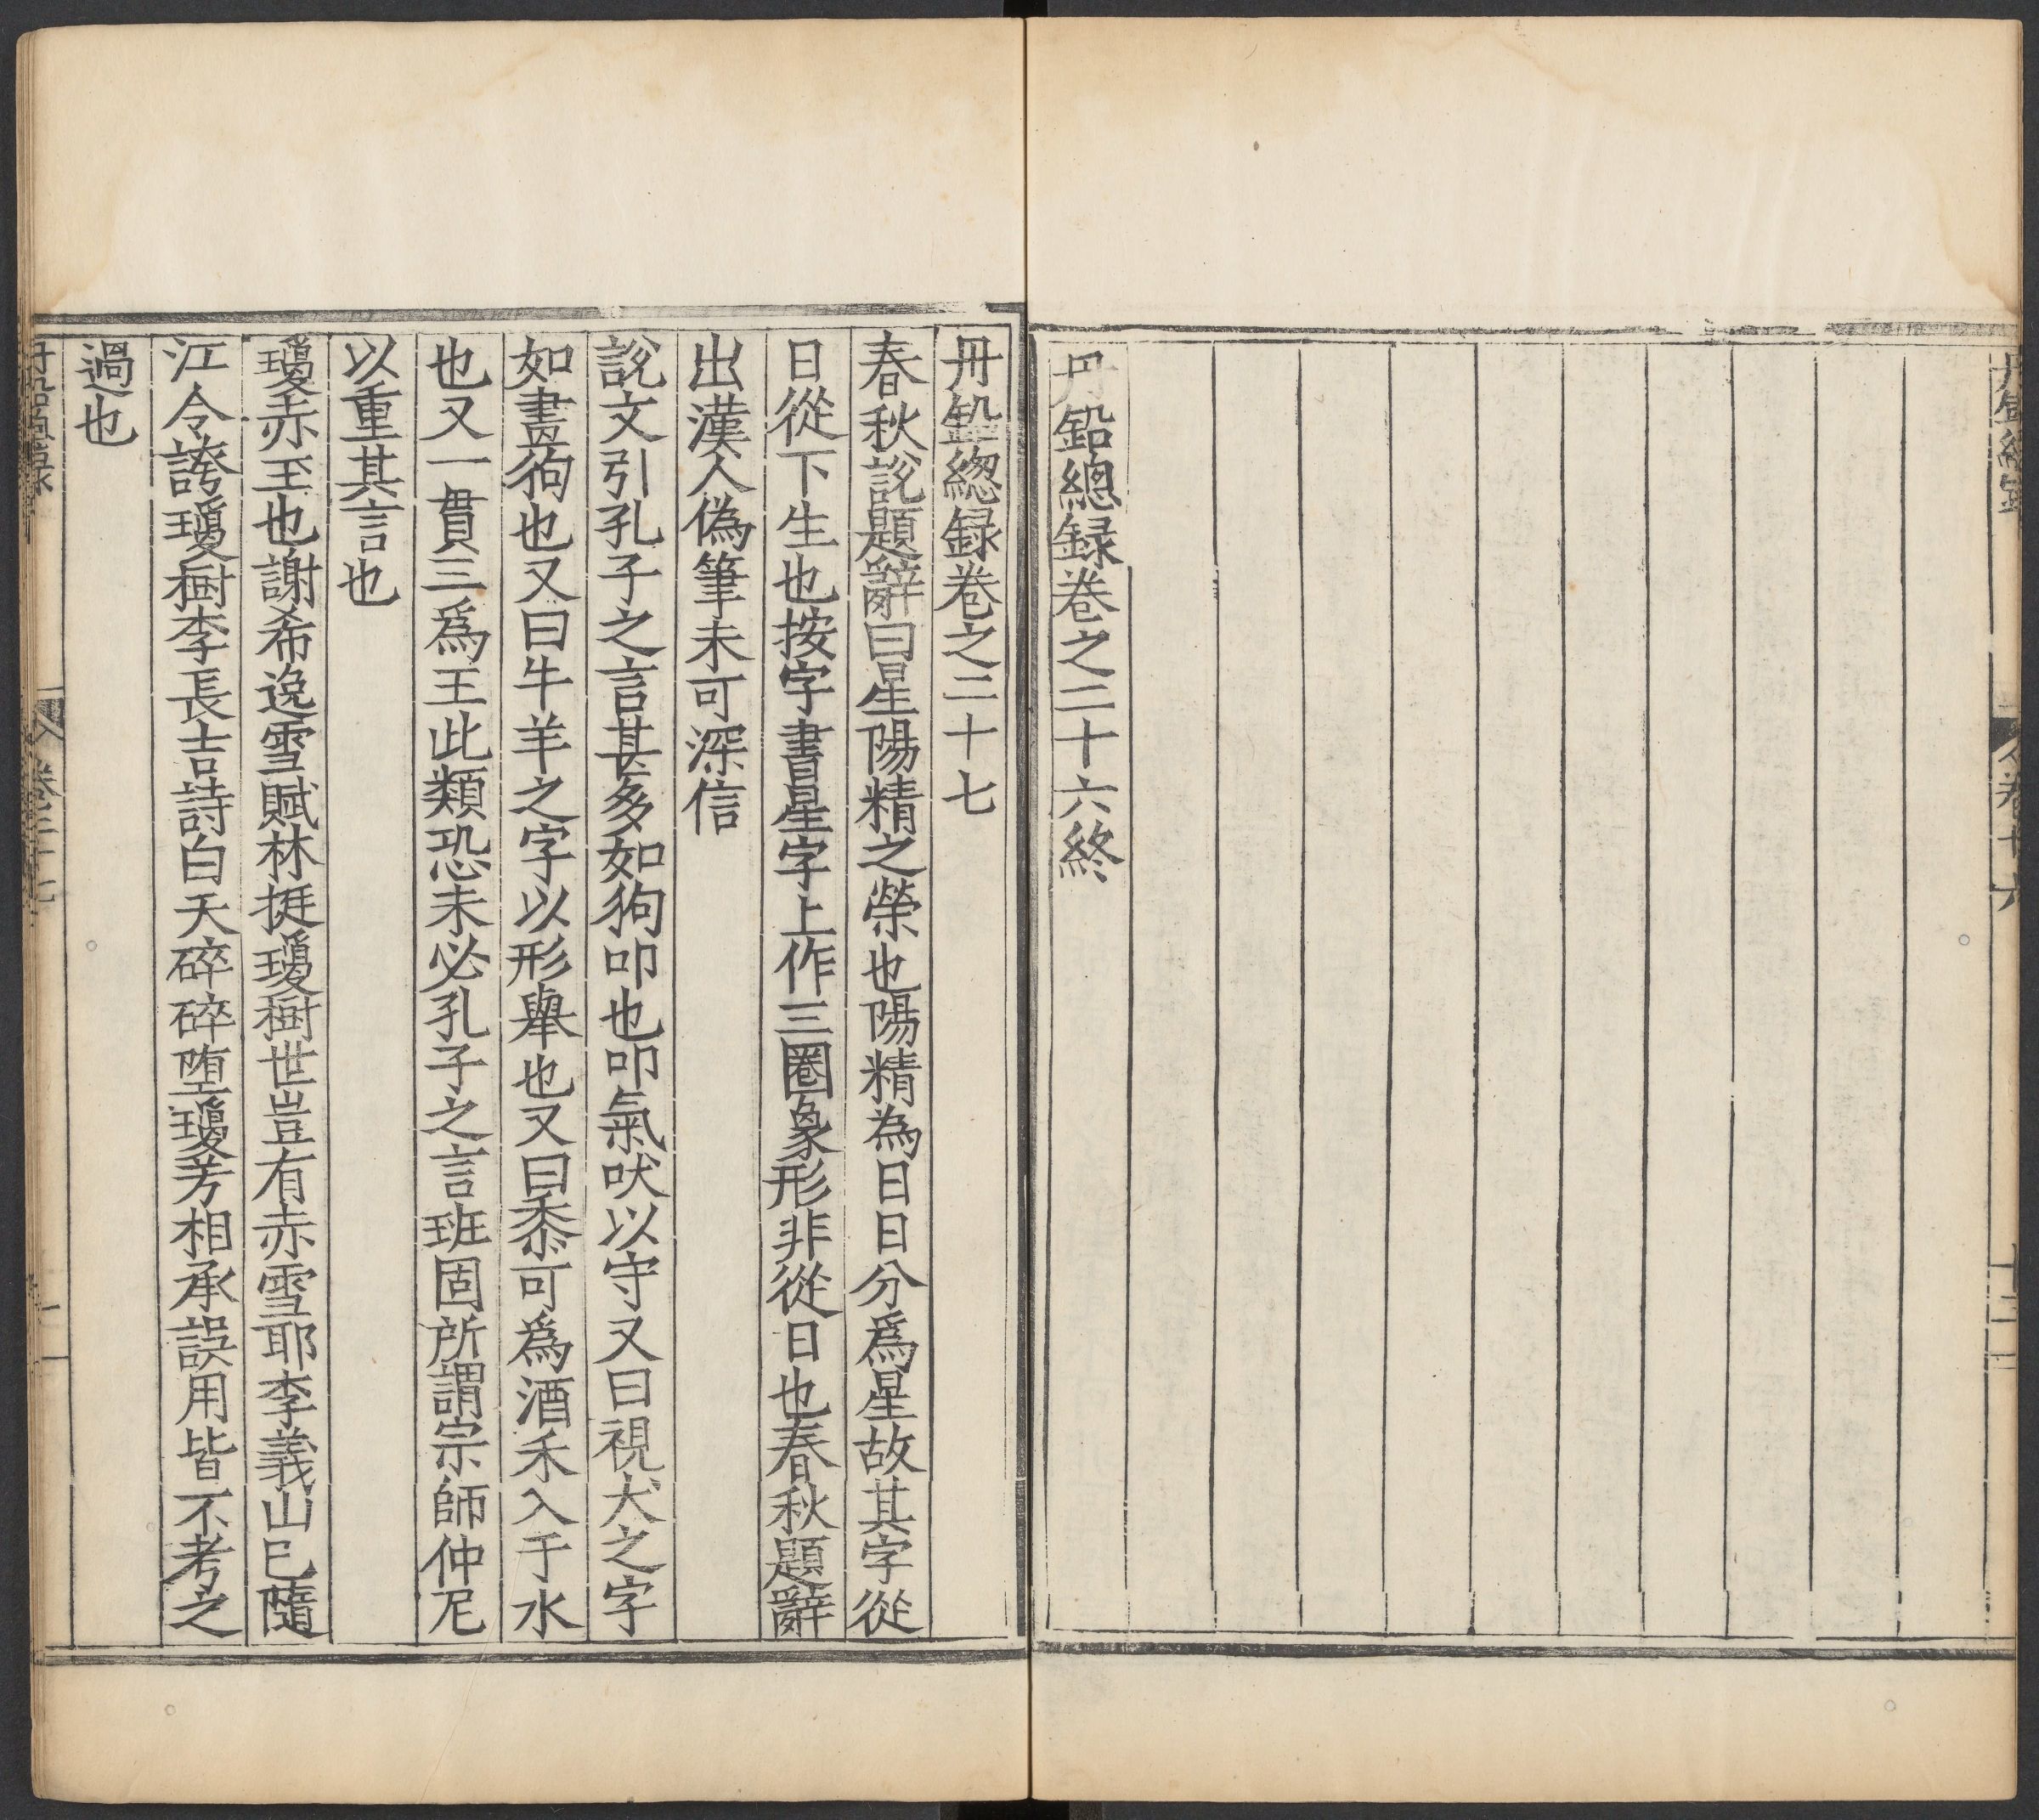 丹鉛總録卷之二十六終
丹鉛總録卷之二十七
春秋說題辭曰星陽精之榮也陽精為日日分爲星故其字從
日從下生也按字書星字上作三圈象形非從日也春秋題辭
出漢人偽筆未可深信
說文引孔子之言甚多如狗叩也叩氣吠以守又曰視犬之字
如畫狗也又曰牛羊之字以形舉也又曰黍可爲酒禾入于水
也又一貫三爲王此類恐未必孔子之言班固所謂宗師仲尼
以重其言也
瓊赤玉也謝希逸雪賦林挺瓊樹世豈有赤雪耶李義山已隨
江令誇瓊樹李長吉詩白天碎碎堕瓊芳相承誤用皆不考之
過也